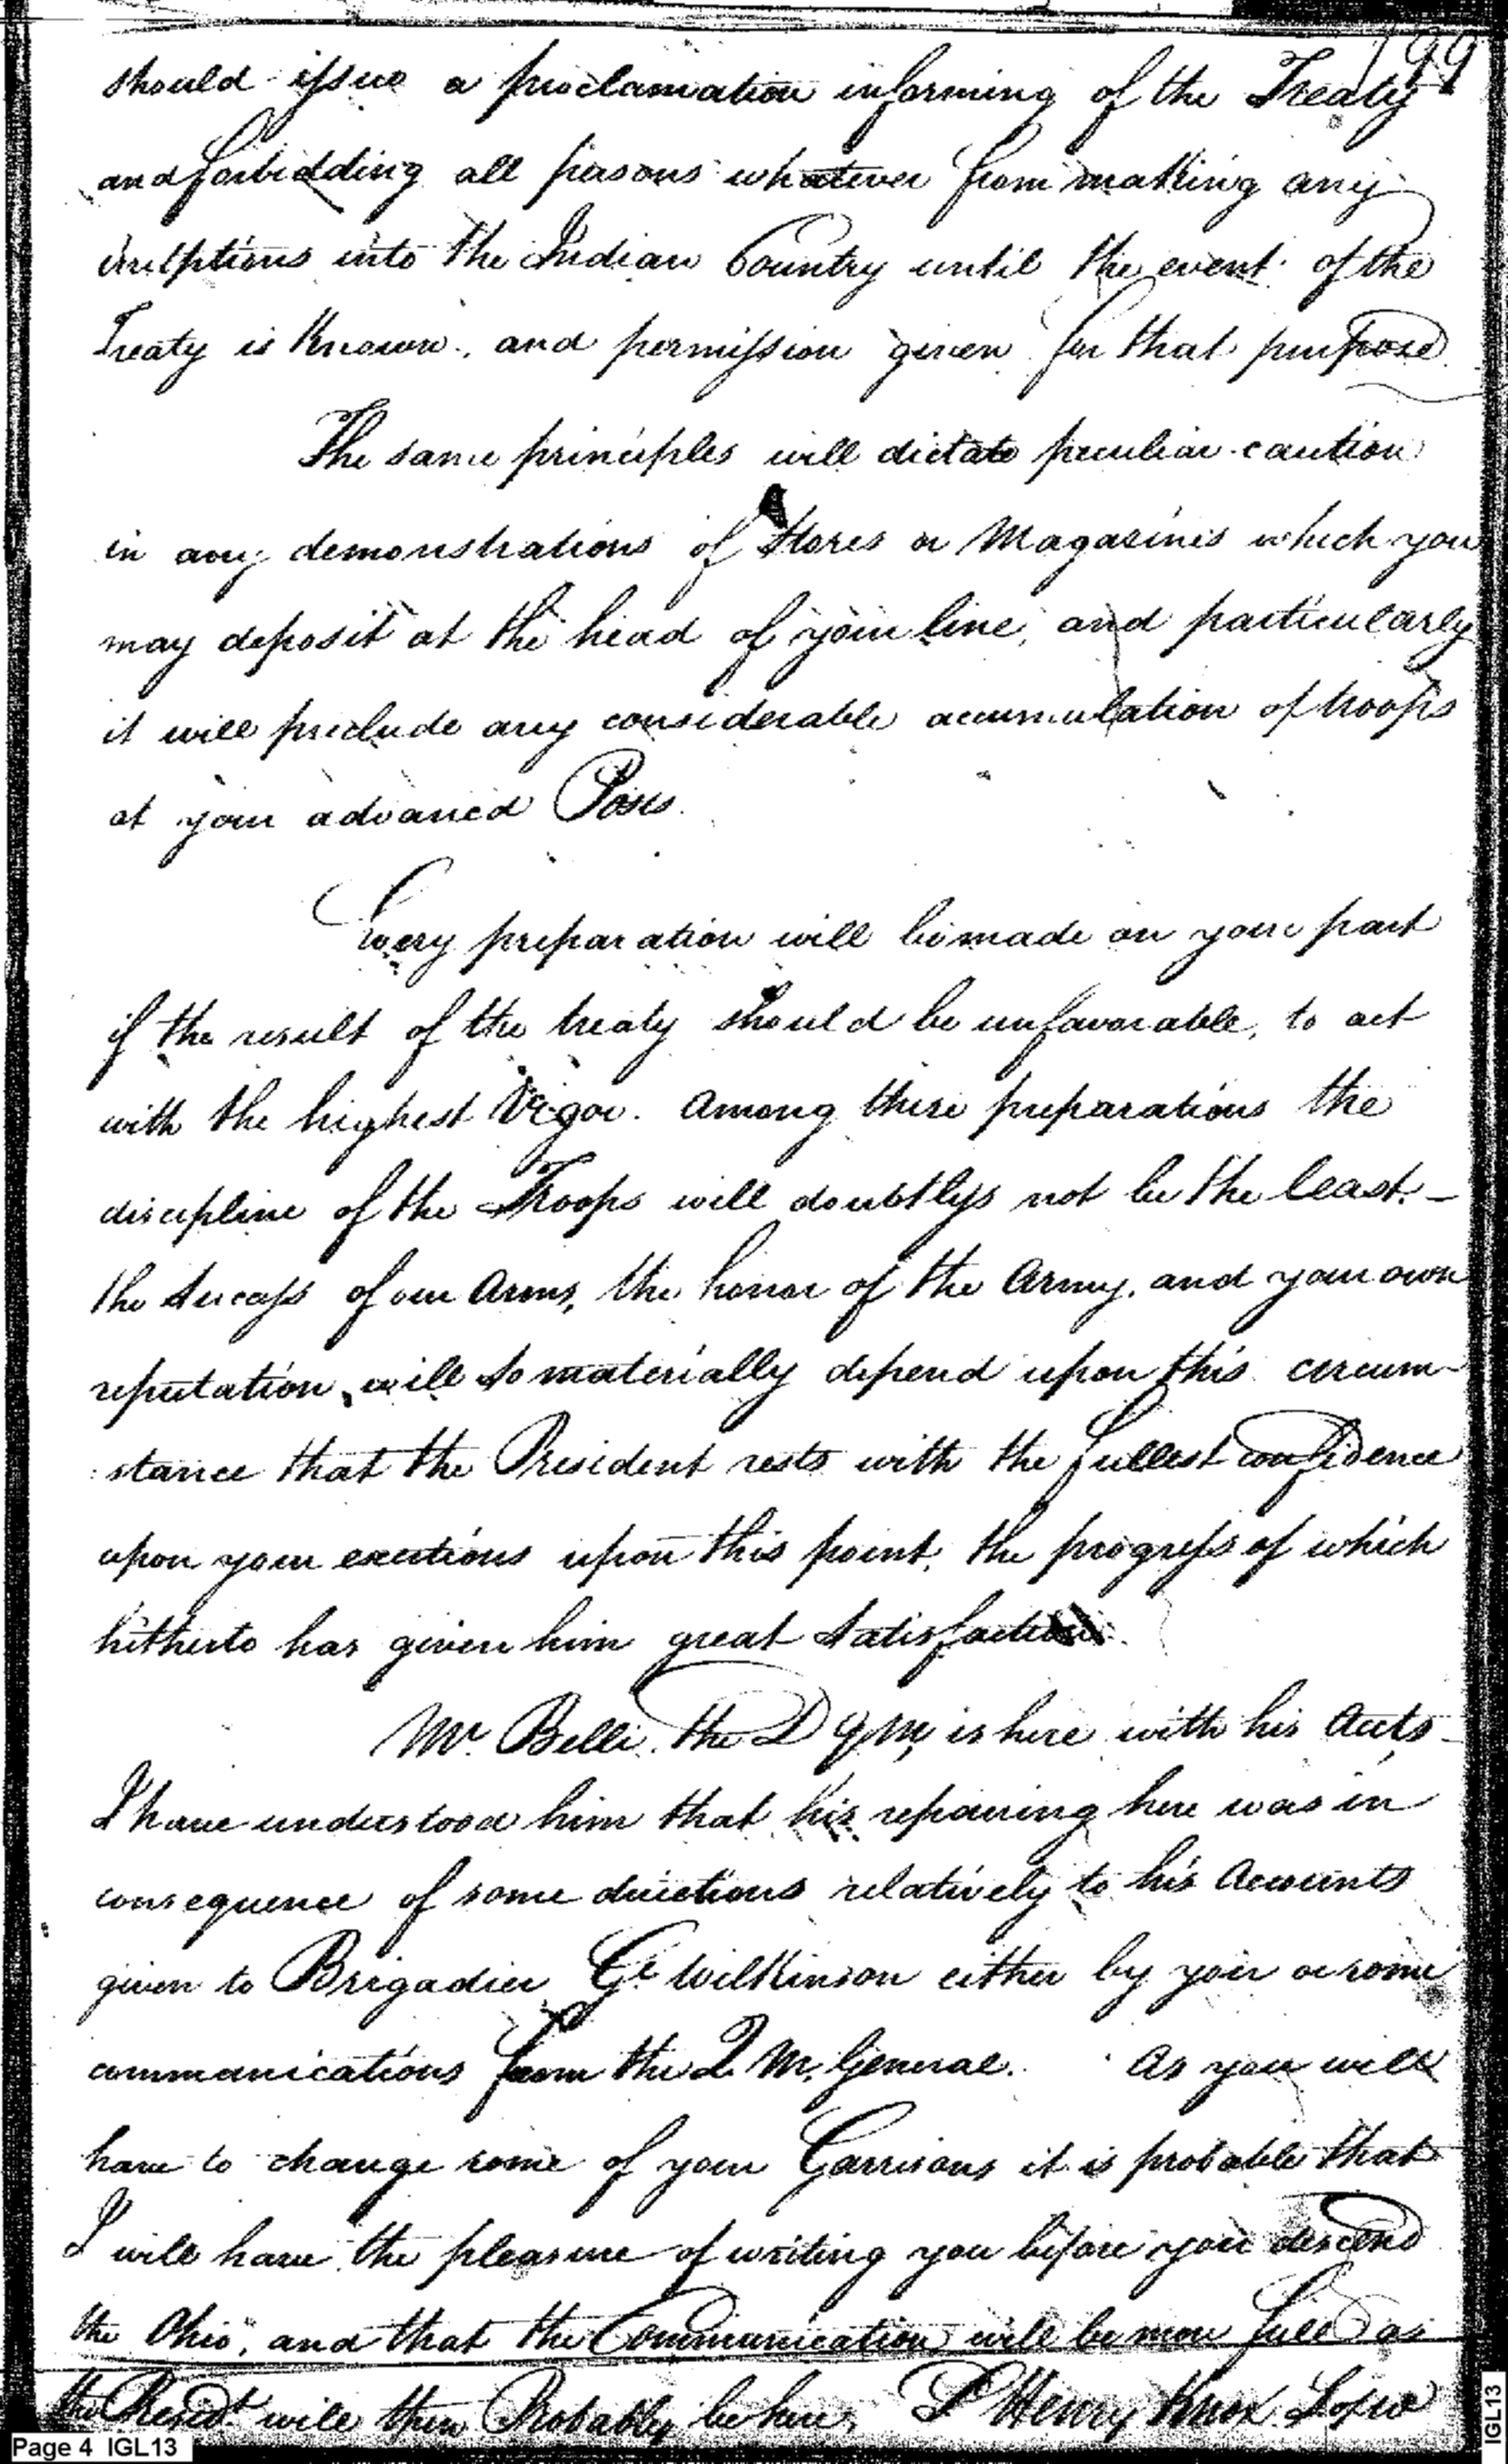 199
should issue a proclamation informing of the Treaty
and forbidding all persons whatever from making any
irruptions into the Indian Country until the event of the
Treaty is Known, and permission given for that purpose
The same principles will dictate peculiar caution
in any demonstrations of Stores or Magazines which you
may deposit at the head of your line, and particularly
it will preclude any considerable accumulation of troops
at your advanced Posts.
Every preparation will be made on your part
if the result of the treaty should be unfavorable, to act
with the highest Vigor. Among these preparations the
discipline of the Troops will doubtless not be the least. –
the Success of our Arms, the honor of the Army, and your own
reputation, will so materially depend upon this circum-
stance that the President rests with the fullest confidence
upon your exertions upon this point, the progress of which
hitherto has given him great Satisfaction.
Mr. Belli, the D Q M, is here with his Accts –
I have understood him that his repairing here was in
consequence of some directions relatively to his Accounts
given to Brigadier Gl Wilkinson either by you or some
communications from the Q M, General. As you will
have to change some of your Garrisons it is probable that
I will have the pleasure of writing you before you descend
the Ohio, and that the Communication will be more full as
the Presidt will then Probably be here. Henry Knox Secw
Page 4 IGL13
IGL13